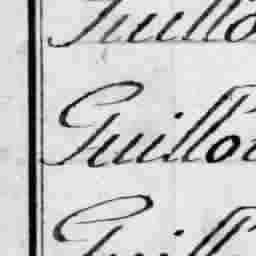 Guillo
Guillo
Guill